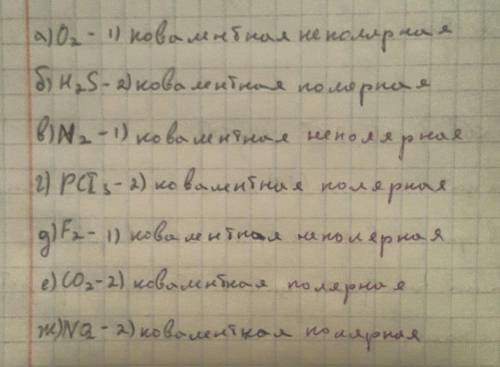 а) O₂ - 1) ковалентная неполярная
б) H₂S - 2) ковалентная полярная
в) N₂ - 1) ковалентная неполярная
г) PCl₃ - 2) ковалентная полярная
д) F₂ - 1) ковалентная неполярная
е) CO₂ - 2) ковалентная полярная
ж) - 2) ковалентная полярная